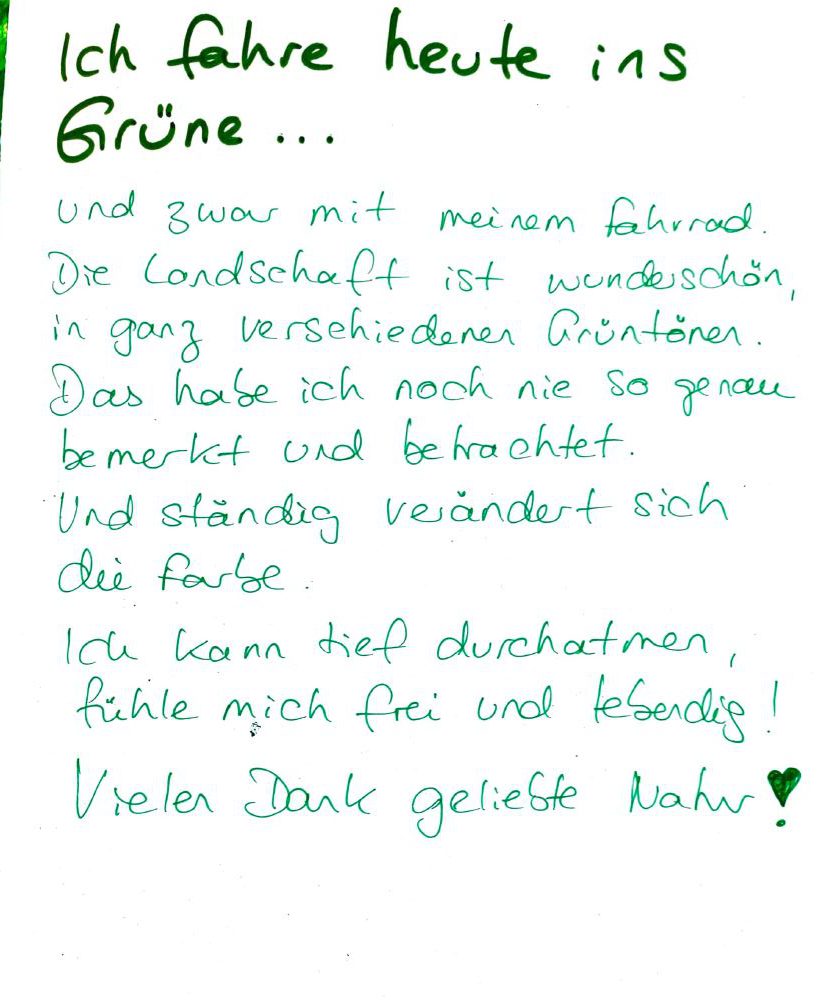 Ich fahre heute ins
Grüne ...
und zwar mit meinem Fahrrad.
Die Landschaft ist wunderschön,
in ganz verschiedenen Grüntönen.
Das habe ich noch nie so genau
bemerkt und betrachtet.
Und ständig verändert sich
die Farbe.
Ich kann tief durchatmen,
fühle mich frei und lebendig!
Vielen Dank geliebte Natur!